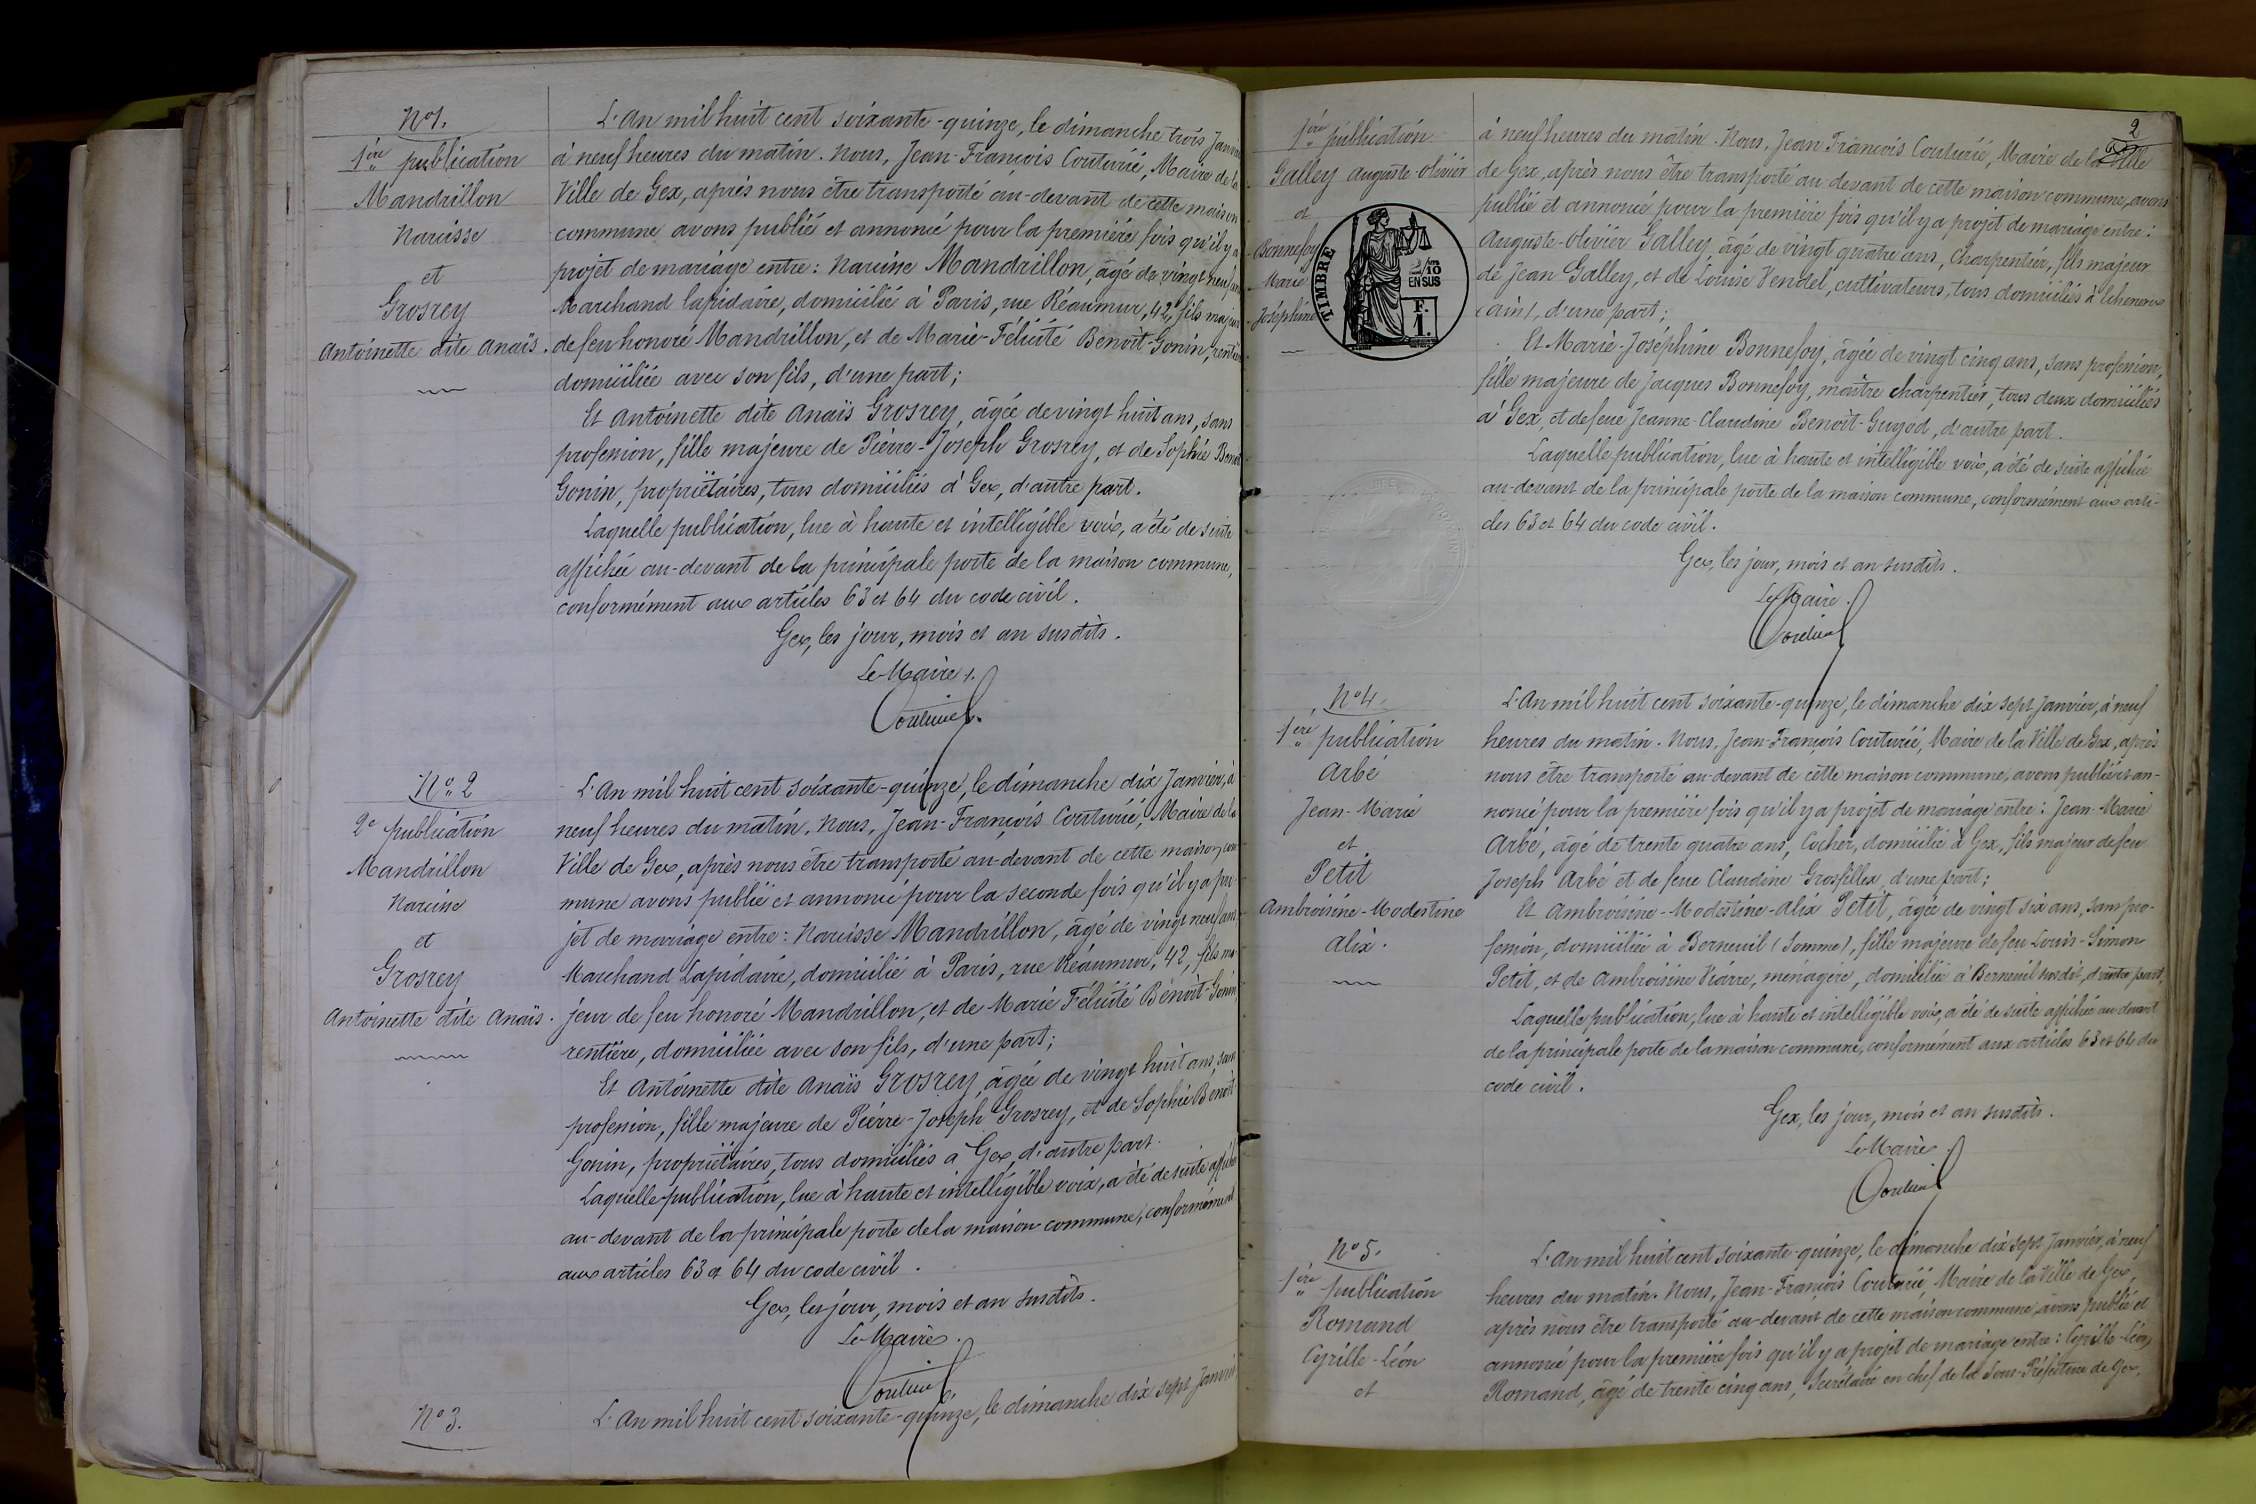 N° 1.
1ère publication
Mandrillon
Narcisse
et
Grosrey
Antoinette dite Anaïs.
L'An mil huit cent soixante-quinze, le dimanche trois Janvier
à neuf heures du matin. Nous, Jean-François Couturié, Maire de la
Ville de Gex, après nous être transporté au-devant de cette maison
commune avons publié et annoncé pour la première fois qu'il y a
projet de mariage entre: Narcisse Mandrillon, âgé de vingt neuf ans
Marchand lapidaire, domicilié à Paris, rue Réaumur, 42, fils majeur
de feu honoré Mandrillon, et de Marie-Félicité Benoit-Gonin, rentière
domiciliée avec son fils, d'une part;
Et Antoinette dite Anaïs Grosrey, âgée de vingt huit ans, sans
profession, fille majeure de Pierre-Joseph Grosrey, et de Sophie Benoit
Gonin, propriétaires, tous domiciliés à Gex, d'autre part.
Laquelle publication, lue à haute et intelligible voix, a été de suite
affichée au-devant de la principale porte de la maison commune,
conformément aux articles 63 et 64 du code civil.
Gex, les jour, mois et an susdits.
Le Maire.
N° 2
2e publication
Mandrillon
Narcisse
et
Grosrey
Antoinette dite Anaïs.
L'An mil huit cent soixante-quinze, le dimanche dix Janvier, à
neuf heures du matin. Nous, Jean-François Couturié, Maire de la
Ville de Gex, après nous être transporté au-devant de cette maison com
mune avons publié et annoncé pour la seconde fois qu'il y a pro
jet de mariage entre: Narcisse Mandrillon, âgé de vingt neuf ans
Marchand Lapidaire, domicilié à Paris, rue Réaumur, 42, fils ma
jeur de feu honoré Mandrillon, et de Marie Félicité Benoit-Gonin
rentière, domiciliée avec son fils, d'une part;
Et Antoinette dite Anaïs Grosrey, âgée de vingt huit ans, sans
profession, fille majeure de Pierre-Joseph Grosrey, et de Sophie Benoit
Gonin, propriétaires, tous domiciliés à Gex, d'autre part.
Laquelle publication, lue à haute et intelligible voix, a été de suite affichée
au-devant de la principale porte de la maison commune, conformément
aux articles 63 et 64 du code civil.
Gex, les jour, mois et an susdits.
Le Maire.
N° 3.
L'An mil huit cent soixante-quinze, le dimanche dix sept Janvier
2
1ère publication
Galley Auguste-Olivier
et
Bonnefoy
Marie
Joséphine
TIMBRE
2/10
EN SUS
F.
1.
à neuf heures du matin. Nous, Jean François Couturié, Maire de la Ville
de Gex, après nous être transporté au devant de cette maison commune, avons
publié et annoncé pour la première fois qu'il y a projet de mariage entre:
Auguste-Olivier Galley, âgé de vingt quatre ans, Charpentier, fils majeur
de Jean Galley, et de Louise Vendel, cultivateurs, tous domiciliés à Echenevex
(Ain), d'une part;
Et Marie-Joséphine Bonnefoy, âgée de vingt cinq ans, sans profession,
fille majeure de Jacques Bonnefoy, maître charpentier, tous deux domiciliés
à Gex, et de feue Jeanne-Claudine Benoit-Guyod, d'autre part.
Laquelle publication, lue à haute et intelligible voix, a été de suite affichée
au-devant de la principale porte de la maison commune, conformément aux arti-
cles 63 et 64 du code civil.
Gex, les jour, mois et an susdits.
Le Maire.
N° 4.
1ère publication
Arbé
Jean-Marie
et
Petit
Ambroisine-Modestine
Alix.
L'An mil huit cent soixante-quinze, le dimanche dix sept Janvier, à neuf
heures du matin. Nous, Jean-François Couturié, Maire de la Ville de Gex, après
nous être transporté au-devant de cette maison commune, avons publié et an-
noncé pour la première fois qu'il y a projet de mariage entre: Jean-Marie
Arbé, âgé de trente quatre ans, Cocher, domicilié à Gex, fils majeur de feu
Joseph Arbé et de feue Claudine Grosfillex, d'une part;
Et Ambroisine-Modestine-Alix Petit, âgée de vingt six ans, sans pro-
fession, domiciliée à Berneuil (Somme), fille majeure de feu Louis-Simon
Petit, et de Ambroisine Viarre, ménagère, domiciliée à Berneuil susdit, d'autre part.
Laquelle publication, lue à haute et intelligible voix, a été de suite affichée au-devant
de la principale porte de la maison commune, conformément aux articles 63 et 64 du
code civil.
Gex, les jour, mois et an susdits.
Le Maire.
N° 5.
1ère publication
Romand
Cyrille-Léon
et
L'An mil huit cent soixante-quinze, le dimanche dix sept Janvier, à neuf
heures du matin. Nous, Jean-François Couturié, Maire de la Ville de Gex,
après nous être transporté au-devant de cette maison commune, avons publié et
annoncé pour la première fois qu'il y a projet de mariage entre: Cyrille-Léon
Romand, âgé de trente cinq ans, Secrétaire en chef de la Sous-Préfecture de Gex,